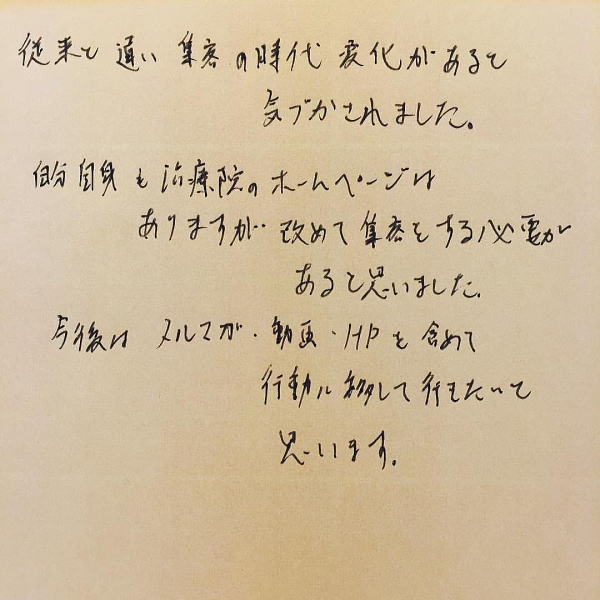 従来と違い集客の時代変化があると
気づかされました。
自分自身も治療院のホームページは
ありますが改めて集客をする必要が
あると思いました。
今後はメルマガ・動画・HPを含めて
行動に移して行きたいと
思います。